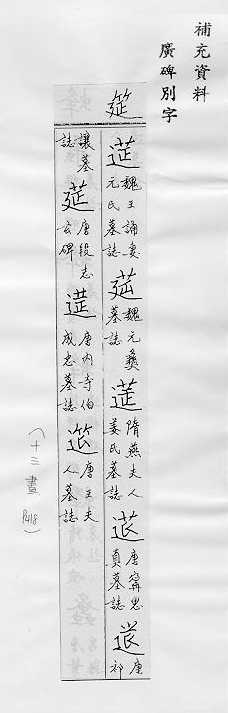 補充資料
廣碑別字
筵
莚魏王誦妻元氏墓誌 莚魏元彝墓誌 隋燕夫人姜氏墓誌 唐寗思真墓誌 唐祁
讓墓誌 莚唐段志玄碑 唐內寺伯成忠墓誌 唐王夫人墓誌
(十三畫 P418)